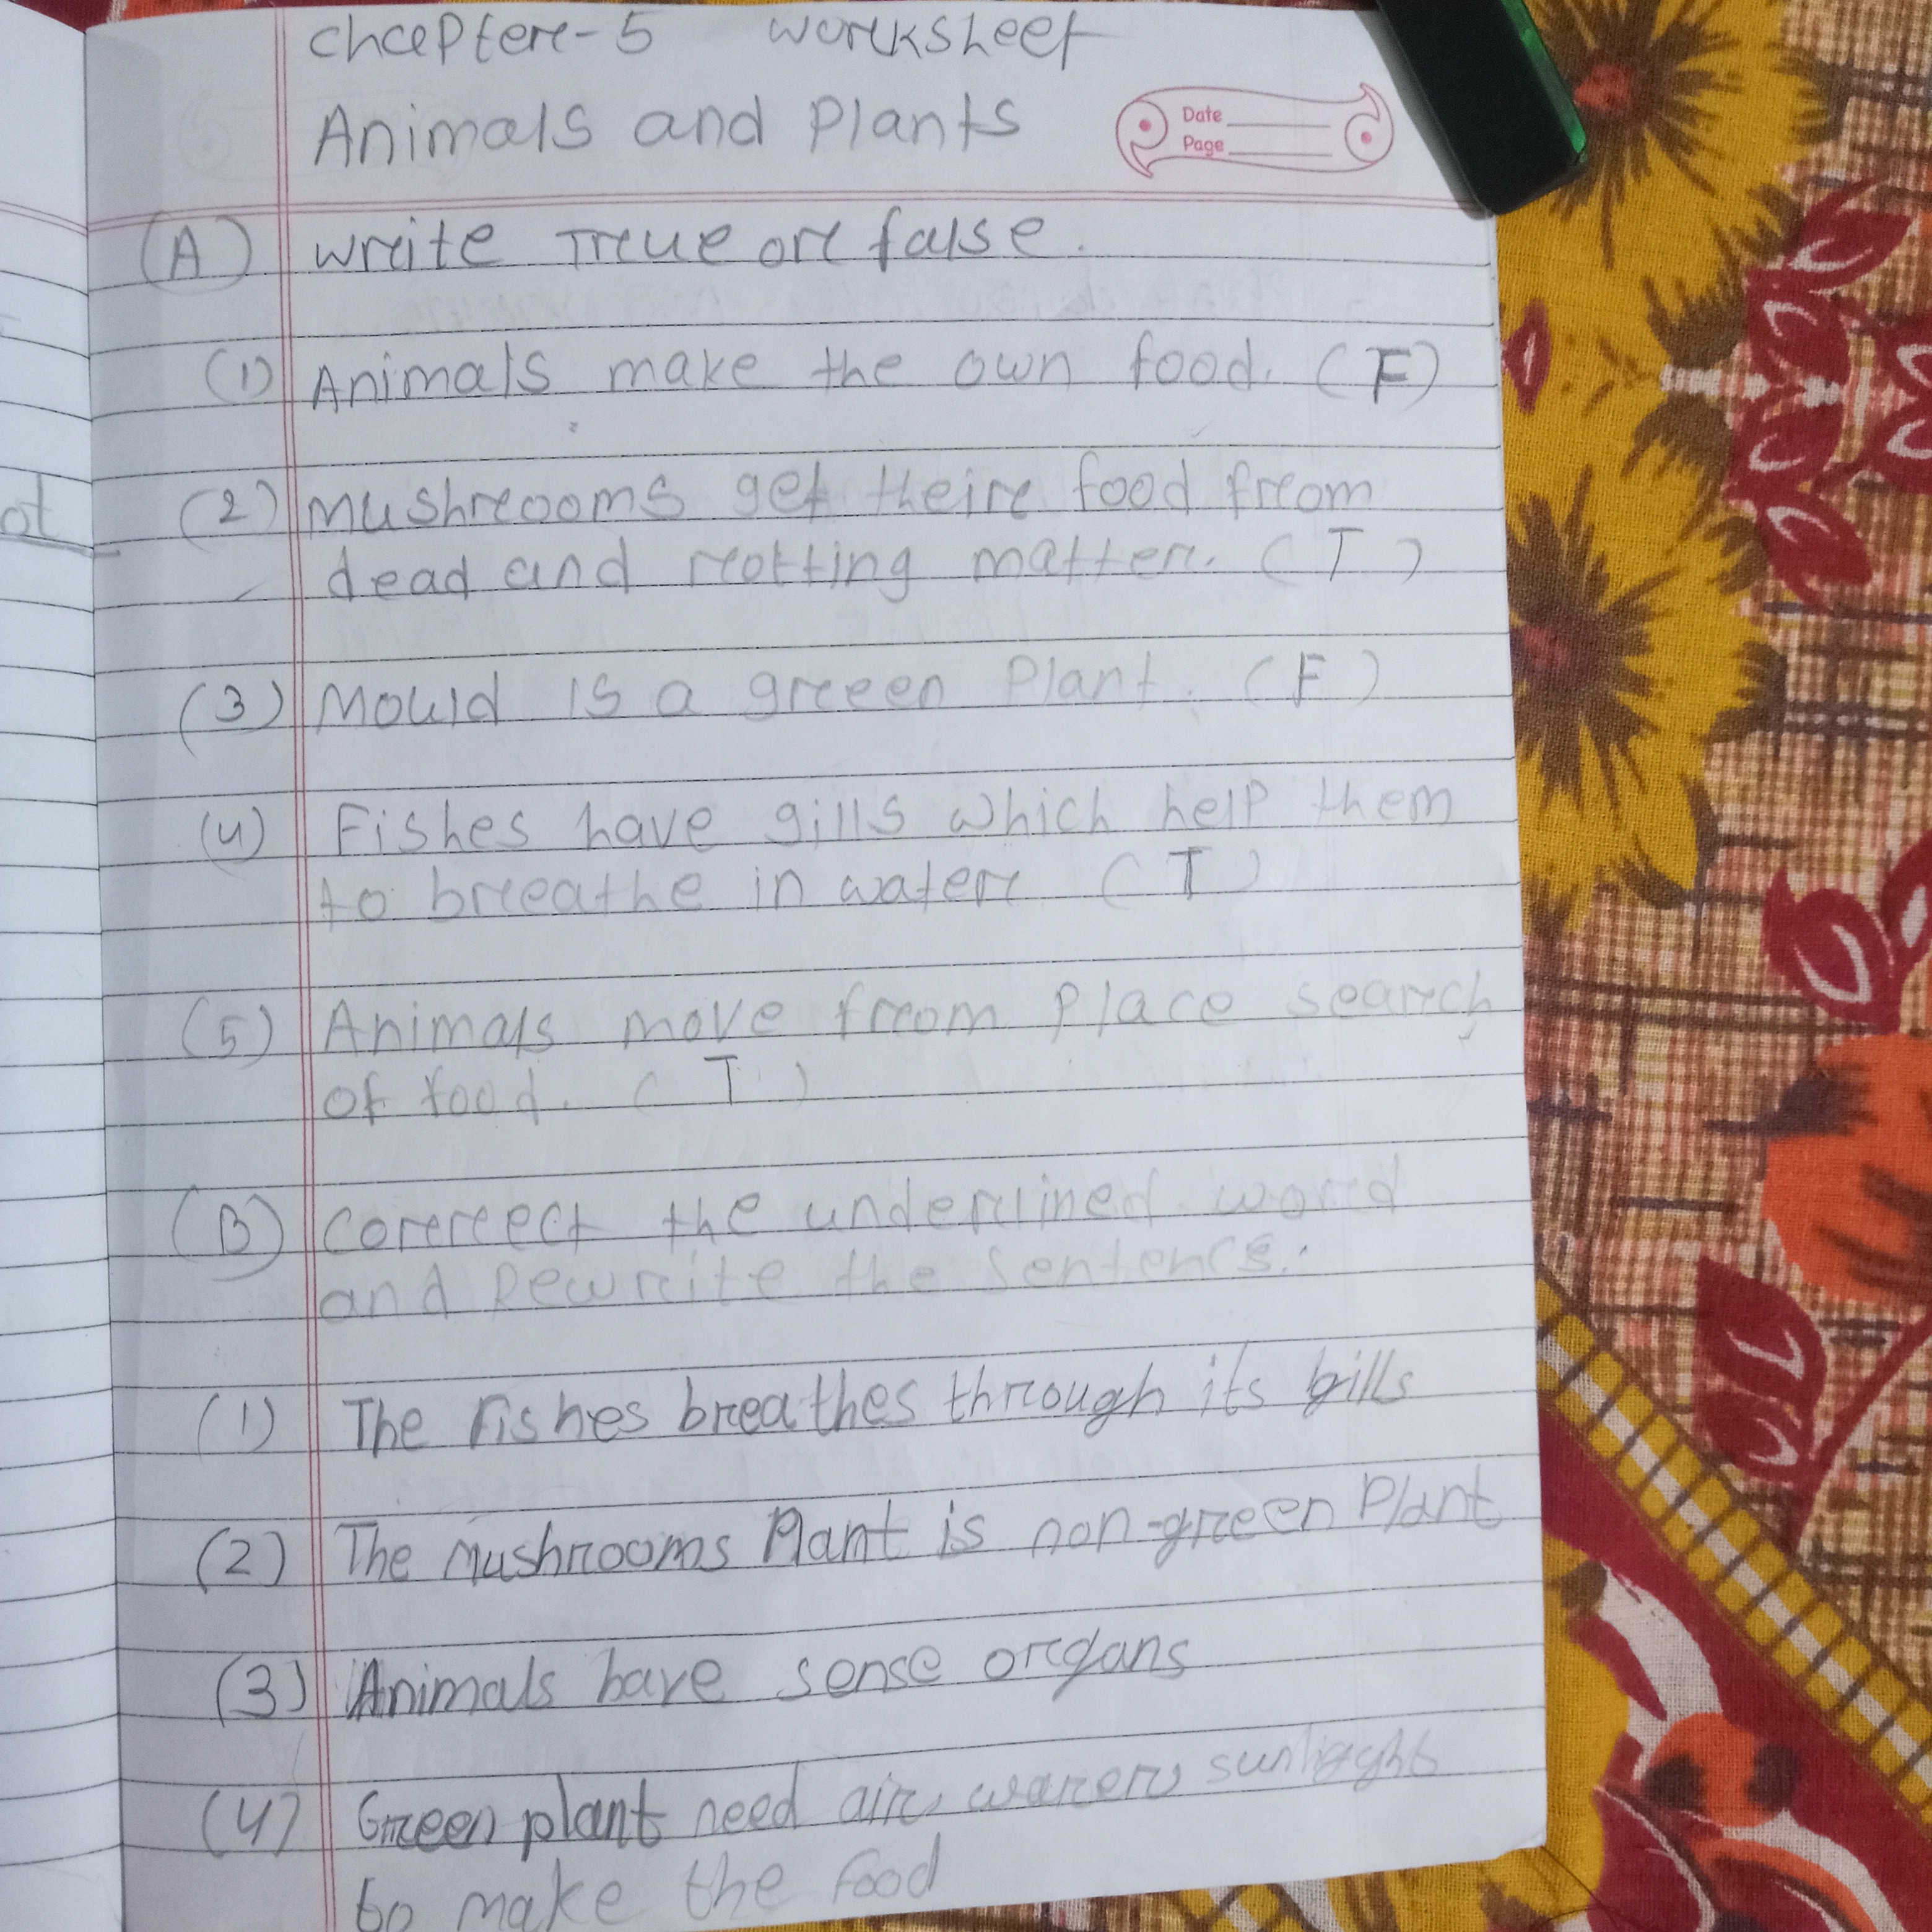 Chapter-5 worksheet
Animals and Plants
Date
Page
(A) write True or false.
(1) Animals make the own food. (F)
(2) Mushrooms get their food from
dead and rotting matter. (T)
(3) Mould is a green Plant. (F)
ot
(4) Fishes have gills which help them
to breathe in water (T)
(5) Animals move from Place search
of food. (T)
(B) Correct the underlined word
and Rewrite the Sentence.
(1) The Fishes breathes through its gills
(2) The Mushrooms Plant is non-green Plant
(3) Animals have sense organs
(4) Green plant need air, sunlight
to make the Food